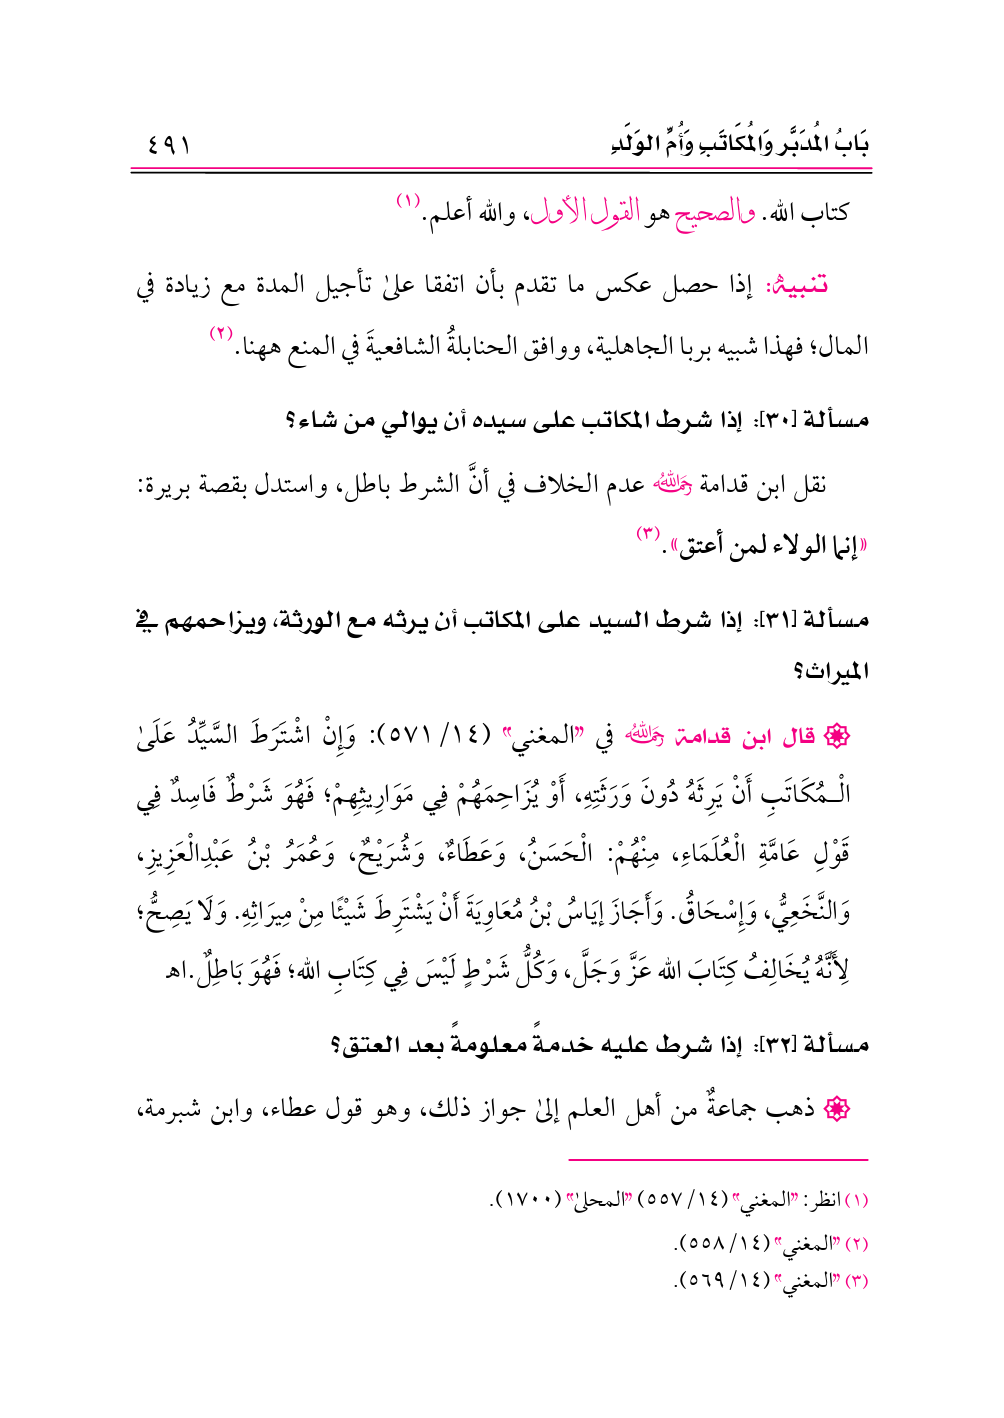 بَابُ الْمُدَبَّرِ وَالْمُكَاتَبِ وَأُمِّ الوَلَدِ ٤٩١
كتاب الله. والصحيح هو القول الأول، والله أعلم.(١)
تنبيهٌ: إذا حصل عكس ما تقدم بأن اتفقا علىٰ تأجيل المدة مع زيادة في
المال؛ فهذا شبيه بربا الجاهلية، ووافق الحنابلةُ الشافعيةَ في المنع ههنا.(٢)
مسألة [٣٠]: إذا شرط المكاتب على سيده أن يوالي من شاء؟
نقل ابن قدامة رَحِمَهُ اللهُ عدم الخلاف في أنَّ الشرط باطل، واستدل بقصة بريرة:
«إنما الولاء لمن أعتق».(٣)
مسألة [٣١]: إذا شرط السيد على المكاتب أن يرثه مع الورثة، ويزاحمهم في
الميراث؟
قال ابن قدامة رَحِمَهُ اللهُ في "المغني" (١٤/ ٥٧١): وَإِنْ اشْتَرَطَ السَّيِّدُ عَلَىٰ
الْـمُكَاتَبِ أَنْ يَرِثَهُ دُونَ وَرَثَتِهِ، أَوْ يُزَاحِمَهُمْ فِي مَوَارِيثِهِمْ؛ فَهُوَ شَرْطٌ فَاسِدٌ فِي
قَوْلِ عَامَّةِ الْعُلَمَاءِ، مِنْهُمْ: الْحَسَنُ، وَعَطَاءٌ، وَشُرَيْحٌ، وَعُمَرُ بْنُ عَبْدِالْعَزِيزِ،
وَالنَّخَعِيُّ، وَإِسْحَاقُ. وَأَجَازَ إيَاسُ بْنُ مُعَاوِيَةَ أَنْ يَشْتَرِطَ شَيْئًا مِنْ مِيرَاثِهِ. وَلَا يَصِحُّ؛
لِأَنَّهُ يُخَالِفُ كِتَابَ الله عَزَّ وَجَلَّ، وَكُلُّ شَرْطٍ لَيْسَ فِي كِتَابِ الله؛ فَهُوَ بَاطِلٌ.اهـ
مسألة [٣٢]: إذا شرط عليه خدمةً معلومةً بعد العتق؟
ذهب جماعةٌ من أهل العلم إلىٰ جواز ذلك، وهو قول عطاء، وابن شبرمة،
(١) انظر: "المغني" (١٤/ ٥٥٧) "المحلىٰ" (١٧٠٠).
(٢) "المغني" (١٤/ ٥٥٨).
(٣) "المغني" (١٤/ ٥٦٩).